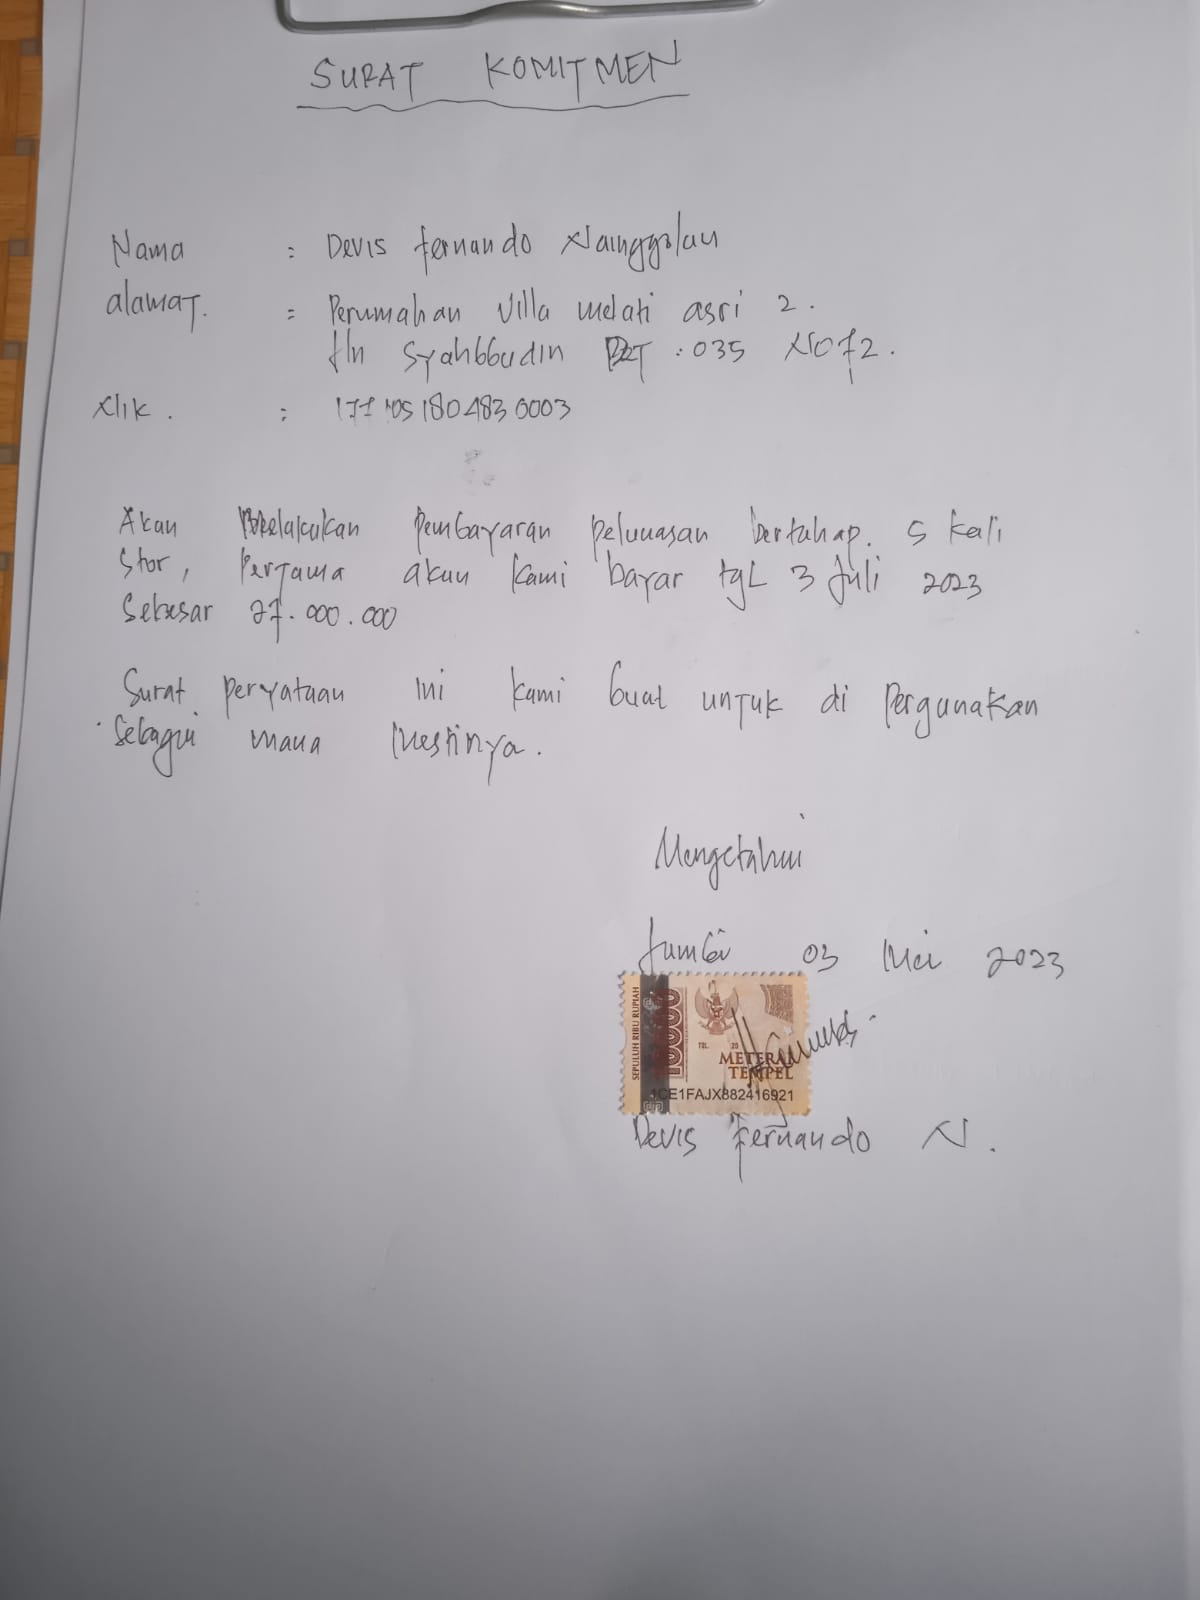 SURAT KOMITMEN
Nama : Devis Fernando Nainggolan
alamat. : Perumahan Villa melati asri 2.
Jln Syahbbudin RT : 035 No 72.
Nik . :
Akan Melakukan Pembayaran pelunasan bertahap. 5 kali
Stor, Pertama akan kami bayar tgl 3 Juli 2023
Sebesar 27.000.000
Surat peryataan ini kami buat untuk di Pergunakan
Sebagai mana mestinya.
Mengetahui
Jambi 03 Mei 2023
SEPULUH RIBU RUPIAH
10000
TGL. 20
METERAI
TEMPEL
CE1FAJX882416921
Devis Fernando N.